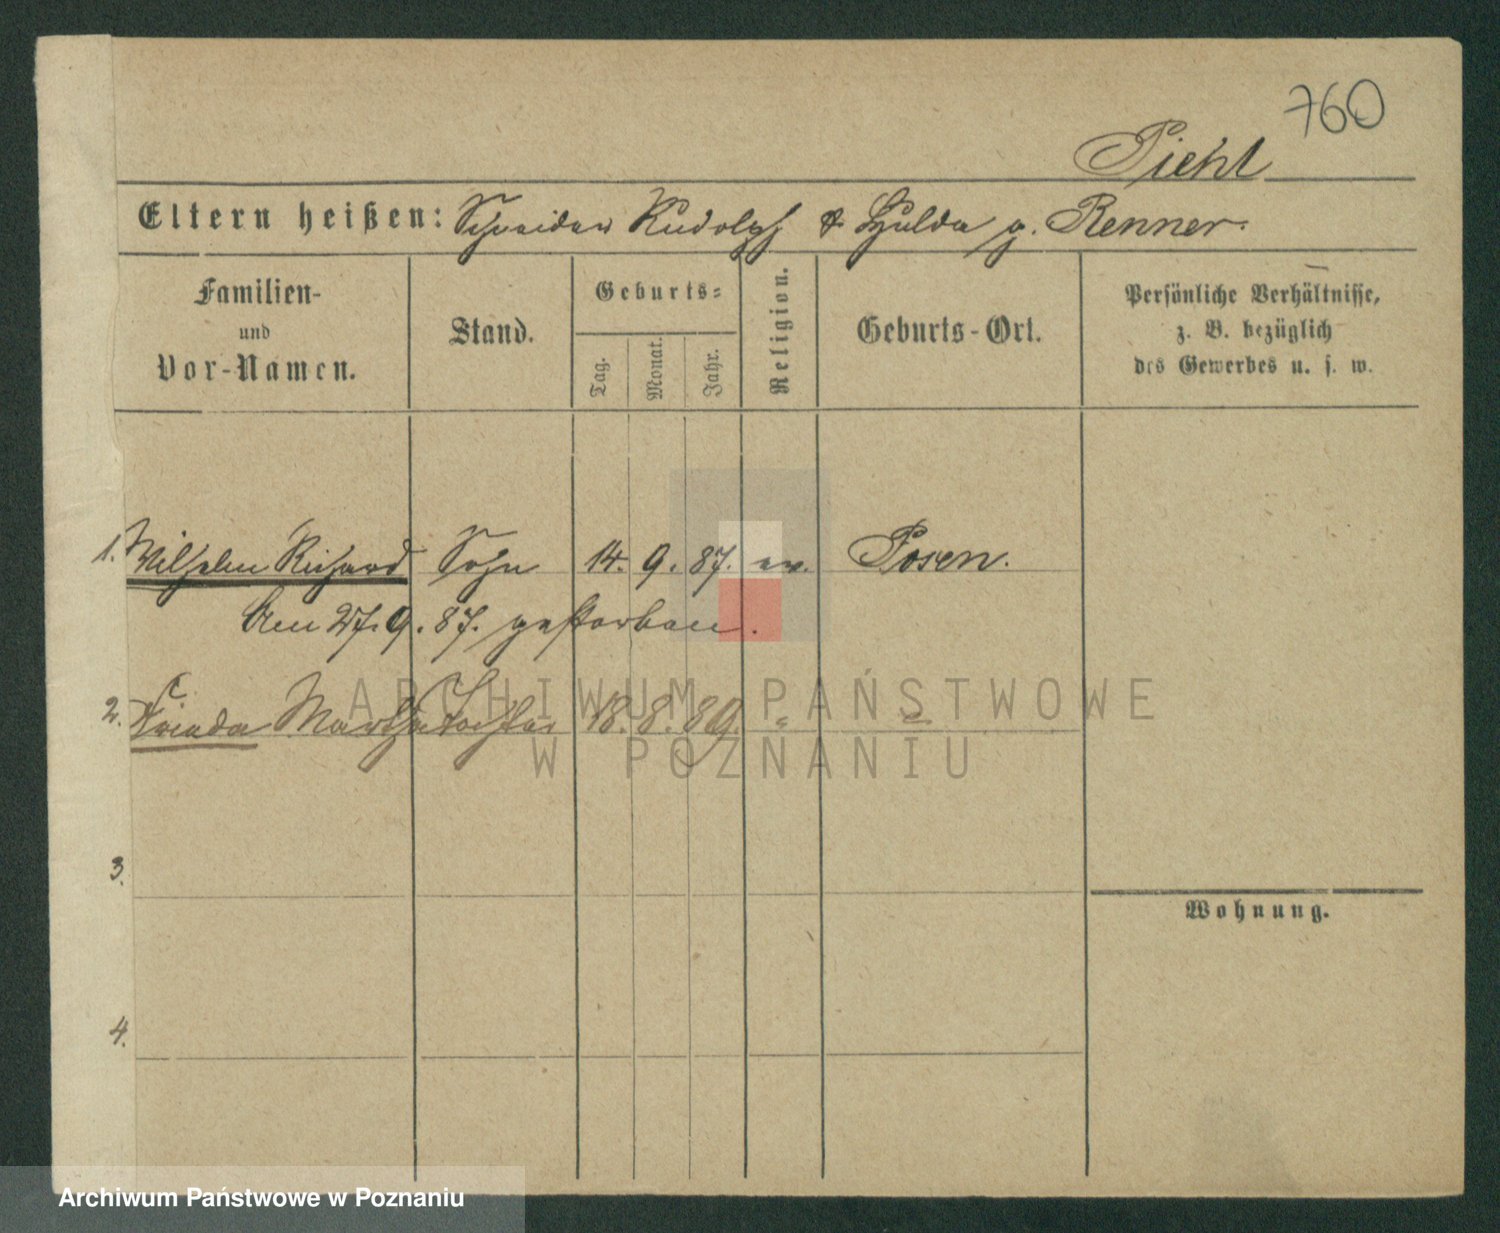 760
Piehl
Eltern heißen: Schneider Rudolph & Hulda g. Renner.
Familien-
und
Vor-Namen.
Stand.
Geburts-
Tag.
Monat.
Jahr.
Religion.
Geburts-Ort.
Persönliche Verhältnisse,
z. B. bezüglich
des Gewerbes u. s. w.
1. Wilhelm Richard Sohn 14. 9. 87. ev. Posen.
Am 27. 9. 87. gestorben.
2. Frieda Martha Tochter 18. 8. 89. " "
3.
Wohnung.
4.
ARCHIWUM PAŃSTWOWE
W POZNANIU
Archiwum Państwowe w Poznaniu